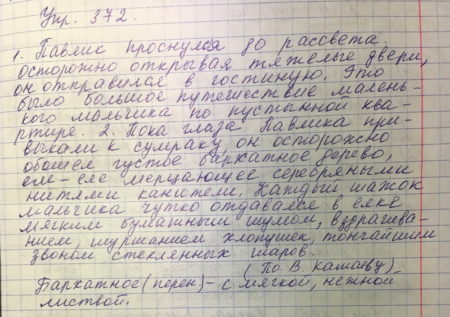 Упр. 372.
1. Павлик проснулся до рассвета.
осторожно открывая тяжелые двери,
он отправился в гостиную. Это
было большое путешествие малень-
кого мальчика по пустынной ква-
ртире. 2. Пока глаза Павлика при-
выкали к сумраку, он осторожно
обошел густое бархатное дерево,
еле-еле мерцающее серебряными
нитями канители. Каждый шажок
мальчика чутко отдавался в елке
мягким бумажным шумом, вздрагива-
нием, шуршанием хлопушек, тончайшим
звоном стеклянных шаров.
(По В. Катаеву)
Бархатное (перен) - с мягкой, нежной
листвой.